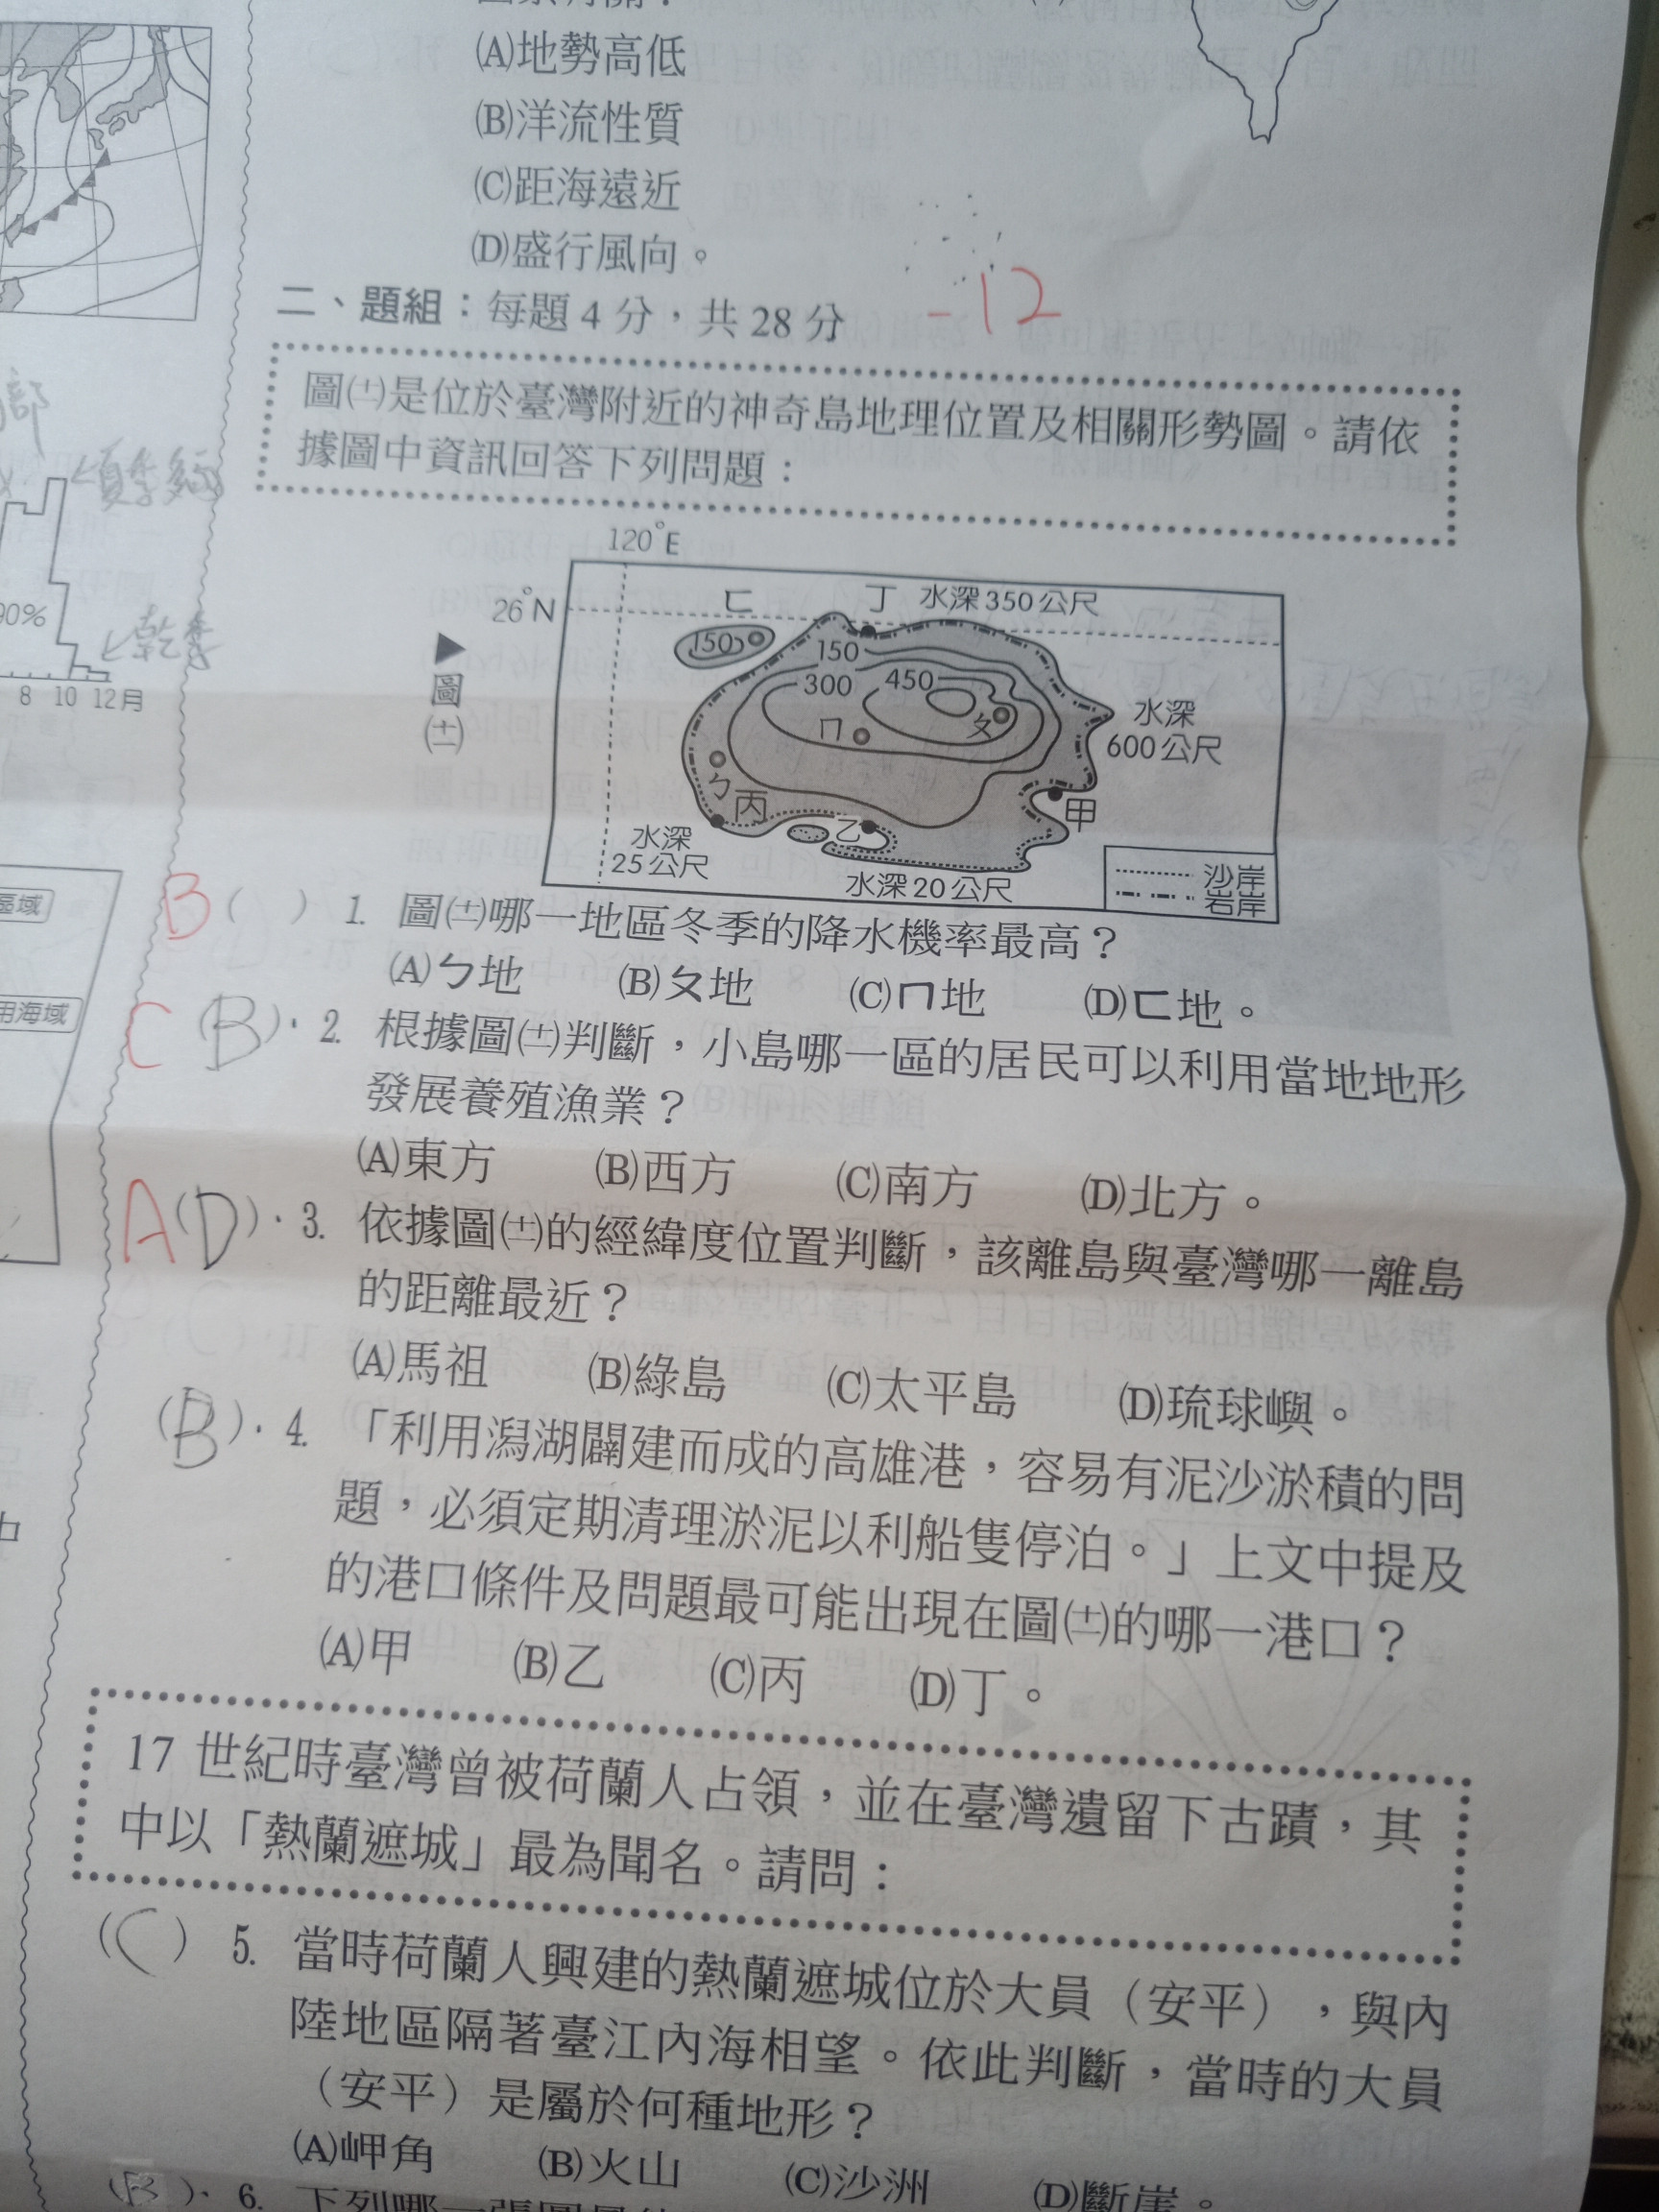 (A)地勢高低
(B)洋流性質
(C)距海遠近
(D)盛行風向。
二、題組：每題 4 分，共 28 分
-12
圖(十二)是位於臺灣附近的神奇島地理位置及相關形勢圖。請依
據圖中資訊回答下列問題：
部
夏季多雨
90%
乾季
8 10 12月
區域
用海域
中
120°E
26°N
ㄈ 丁 水深350公尺
150
150
300 450
ㄇ ㄆ
水深
600公尺
ㄅ 丙
乙
甲
水深
25公尺
水深20公尺
沙岸
岩岸
▶
圖
(十二)
B ( ) 1. 圖(十二)哪一地區冬季的降水機率最高？
(A)ㄅ地 (B)ㄆ地 (C)ㄇ地 (D)ㄈ地。
C (B)· 2. 根據圖(十二)判斷，小島哪一區的居民可以利用當地地形
發展養殖漁業？
(A)東方 (B)西方 (C)南方 (D)北方。
A (D)· 3. 依據圖(十二)的經緯度位置判斷，該離島與臺灣哪一離島
的距離最近？
(A)馬祖 (B)綠島 (C)太平島 (D)琉球嶼。
(B)· 4. 「利用潟湖闢建而成的高雄港，容易有泥沙淤積的問
題，必須定期清理淤泥以利船隻停泊。」上文中提及
的港口條件及問題最可能出現在圖(十二)的哪一港口？
(A)甲 (B)乙 (C)丙 (D)丁。
17 世紀時臺灣曾被荷蘭人占領，並在臺灣遺留下古蹟，其
中以「熱蘭遮城」最為聞名。請問：
(C) 5. 當時荷蘭人興建的熱蘭遮城位於大員（安平），與內
陸地區隔著臺江內海相望。依此判斷，當時的大員
（安平）是屬於何種地形？
(A)岬角 (B)火山 (C)沙洲 (D)斷崖。
(B)· 6.